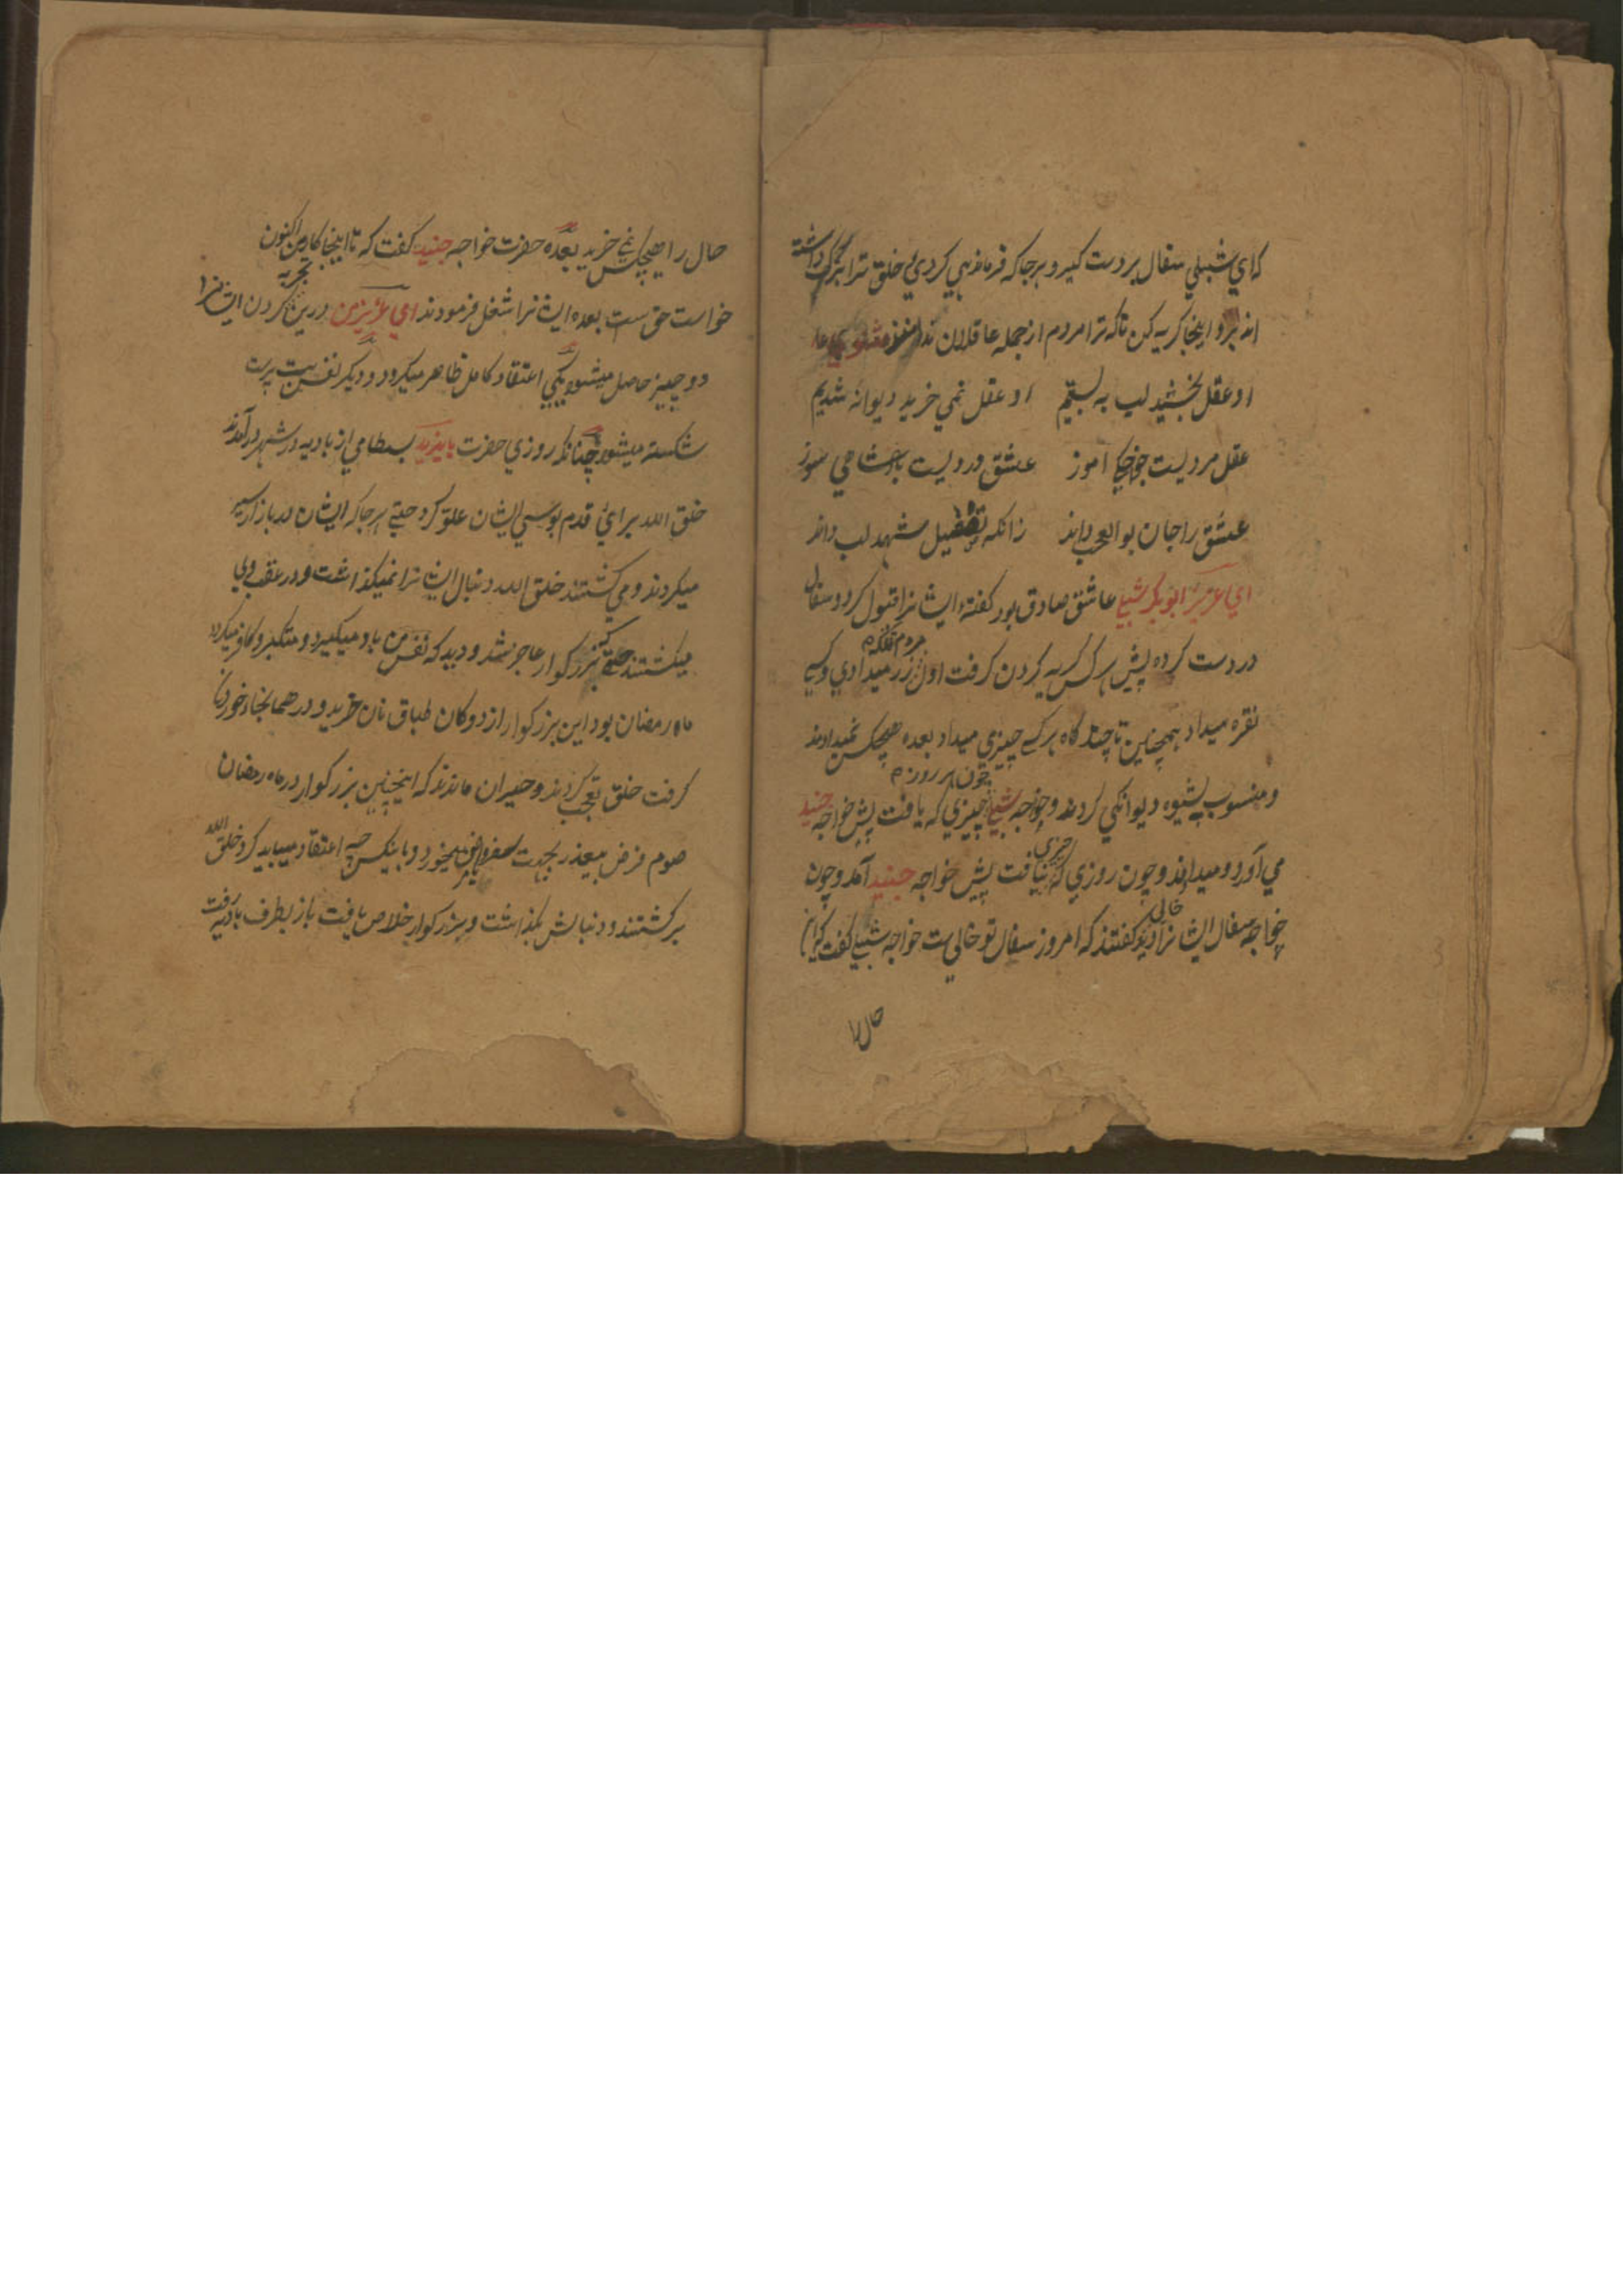 که ای شبلی سفال بر دست گیر و هر جا که فرماندهی کردی خلق ترا بزرگ داشته
اند برو اینجا گریه کن تا که ترا مردم از جمله عاقلان ندانند مثنوی
او عقل بخشید لب به بستیم او عقل نمی خرید دیوانه شدیم
عقل مردیست خواجگی آموز عشق دردیست پادشاهی سوز
عشق را جان بوالعجب داند زانکه تفصیل شهد لب داند
ای عزیز ابوبکر شبلی عاشق صادق بود گفتهٔ ایشانرا قبول کرد و سفال
در دست کرده پیش هر کس گریه کردن گرفت اول مردم زر میدادی و کسی
نقره میداد همچنین تا چند گاه هر کسی چیزی میداد بعده هیچکس نمیدادند
و منسوب بشیوه دیوانگی کردند و خواجه شبلی چون هر روز چیزی که یافت پیش خواجه جنید
می آورد و میداند و چون روزی که چیزی نیافت پیش خواجه جنید آمد و چون
خواجه سفال ایشانرا خالی دید گفتند که امروز سفال تو خالی ست خواجه شبلی گفت که این
حال را
حال را هیچکس نمی خرید بعده حضرت خواجه جنید گفت که تا اینجا کار من اکنون
خواست حق ست بعده ایشانرا شغل فرمودند ای عزیز من درین تجربه کردن ایشانرا
دو چیز حاصل میشود یکی اعتقاد کامل ظاهر میگردد و دیگر نفس بت پرست
شکسته میشود چنانکه روزی حضرت بایزید بسطامی از بادیه در شهر درآمدند
خلق الله برای قدم بوسی ایشان غلو کرد حتی هر جا که ایشان در بازار سیر
میکردند و می گشتند خلق الله دنبال ایشانرا نمیگذاشت و در عقب وی
میگشتند حتی که بزرگوار عاجز شد و دید که نفس من باد میگیرد و متکبر و کافر میگردد
ماه رمضان بود این بزرگوار از دوکان طباق نان خرید و در همانجا خوردن
گرفت خلق تعجب کردند و حیران ماندند که اینچنین بزرگوار در ماه رمضان
صوم فرض بیعذر بجهت میخورد و باینکس چه اعتقاد میباید کرد خلق الله
برگشتند و دنبالش بگذاشت و بزرگوار خلاص یافت باز بطرف بادیه رفت